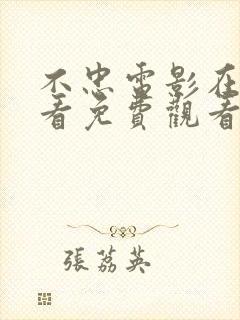 不忠电影在
看免費觀看
張荔英